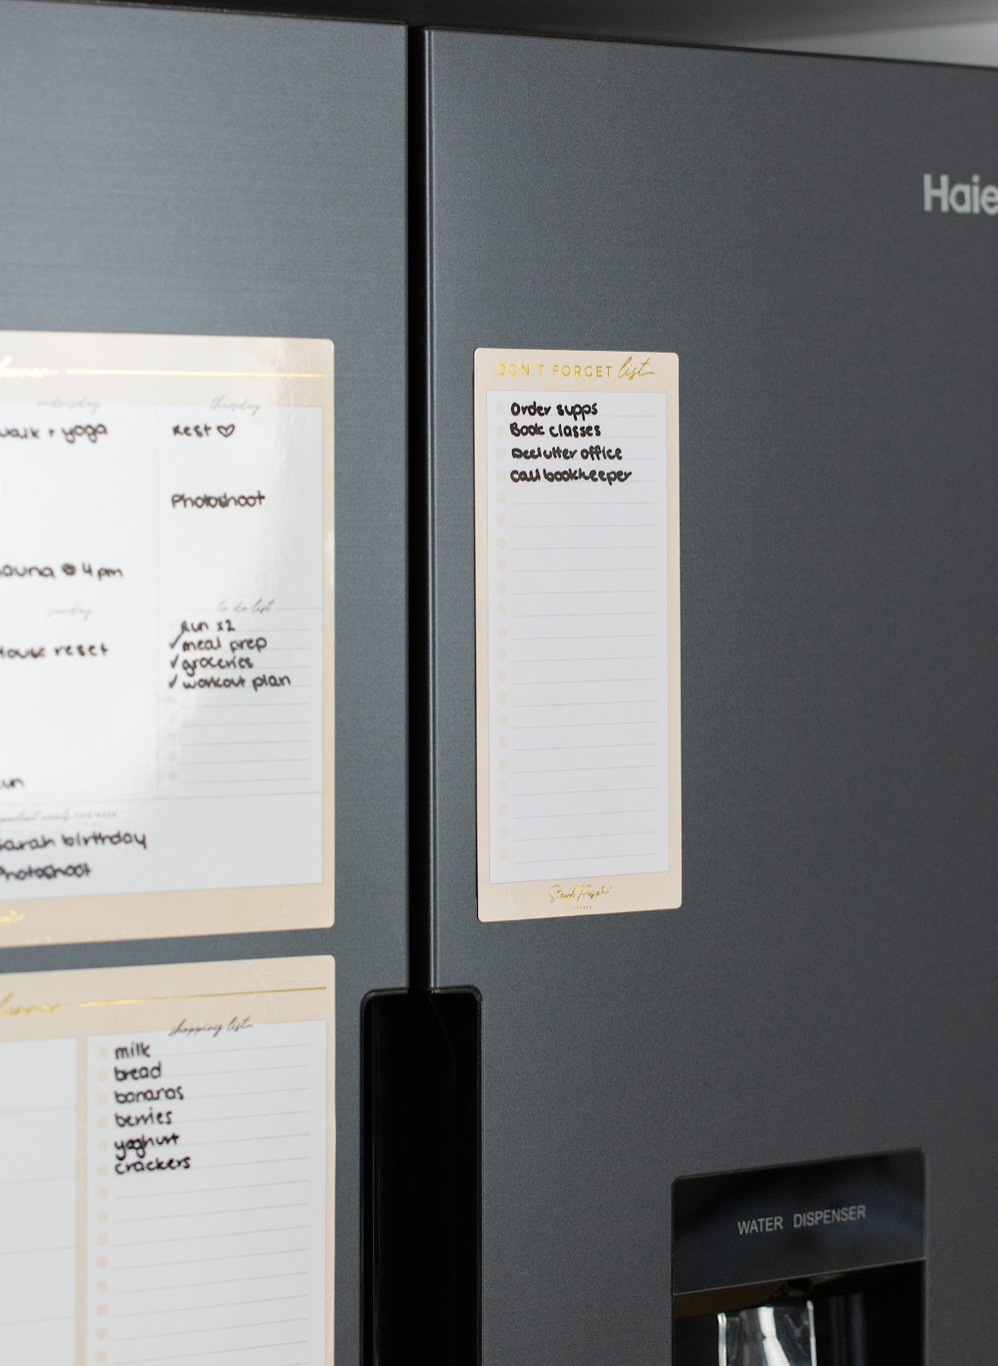 Haie
DON'T FORGET list
Order supps
Book classes
Declutter office
call bookkeeper
wednesday
walk + yoga
sauna @ 4pm
thursday
Rest ♡
Photoshoot
sunday
House reset
to do list
Run x2
✓ meal prep
✓ groceries
✓ workout plan
THIS WEEK
Sarah birthday
Photoshoot
shopping list
milk
bread
bananas
berries
yoghurt
crackers
WATER DISPENSER